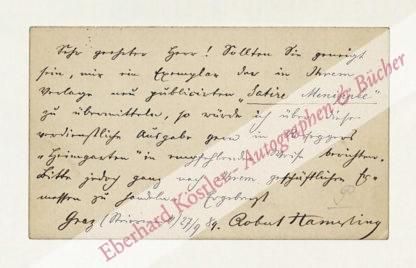 Sehr geehrter Herr! Sollten Sie geneigt
sein, mir ein Exemplar der in Ihrem
Verlage neu publicirten „Satire Menippée“
zu übermitteln, so würde ich über diese
verdienstliche Ausgabe gern in Roseggers
„Heimgarten“ in empfehlender Weise berichten.
Bitte jedoch ganz nach Ihrem geschäftlichen Er-
messen zu handeln. Ergebenst
Graz (Steiermark) 27/9 89. Robert Hamerling
Eberhard Köstler Autographen & Bücher